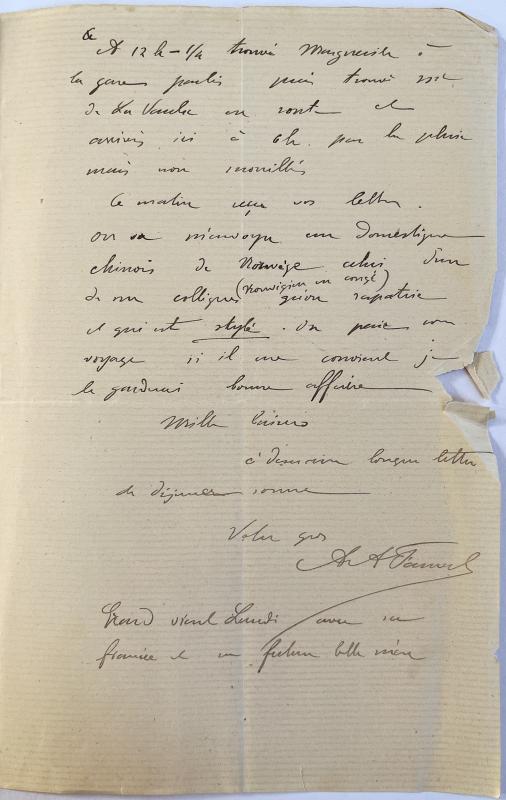 A 12 h - 1/4 trouvé Marguerite à
la gare puis trouvé
de La Vaulx en route et
arrivés ici à 6h par la pluie
mais non mouillés
Ce matin reçu vos lettres.
on va m'envoyer un domestique
chinois de Norvège celui d'un
de mes collègues (Norvégien en congé) qu'on rapatrie
et qui est stylé. On paie son
voyage si il me convient je
le garderai bonne affaire
Mille baisers
à demain longue lettre
le déjeuner sonne
Votre gros
vient Lundi avec sa
fiancée et sa future belle mère